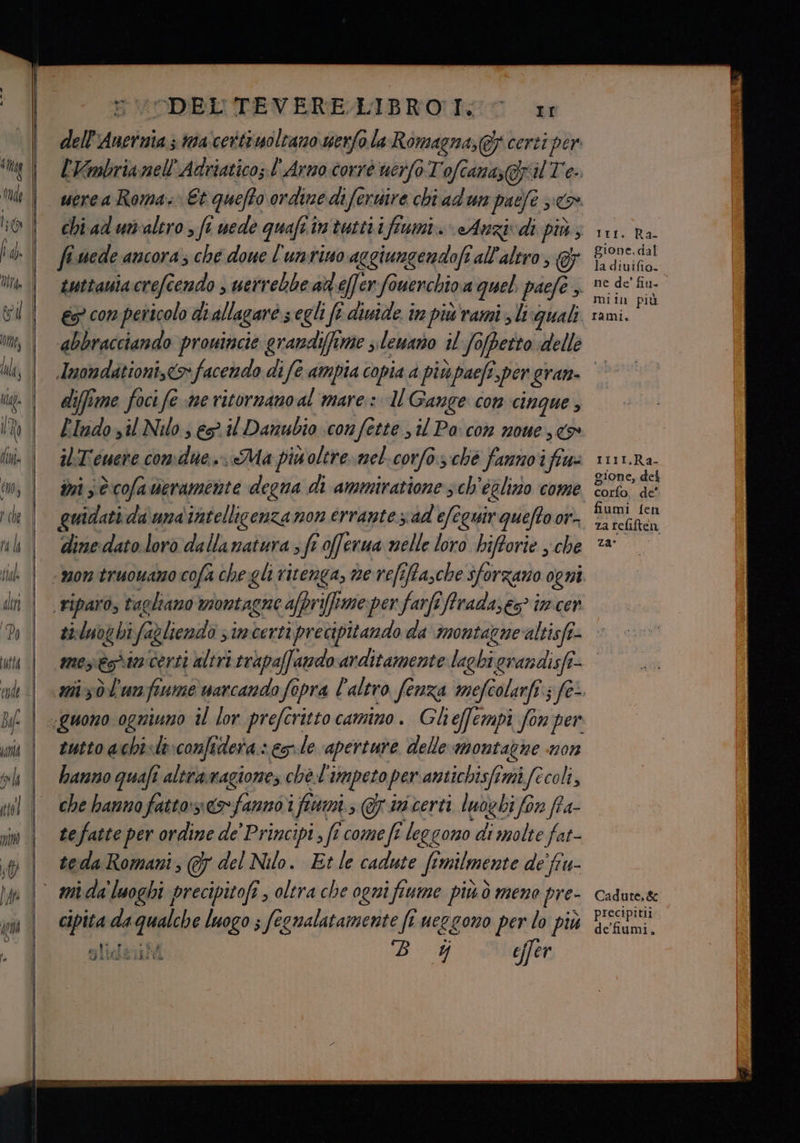 DEL TEVERE LIBRO I. 11
dell'Auernia; ma certi uoltano uerso la Romagna, & certi per
l'Vmbria nell'Adriatico; l'Arno corre uerso Toscana, & il Te-
uere a Roma. Et questo ordine di seruire chi ad un paese, &
chi ad un'altro, si uede quasi in tutti i fiumi. Anzi di più,
si uede ancora, che doue l'un riuo aggiungendosi all'altro, &
tuttauia crescendo, uerrebbe ad esser souerchio a quel paese,
& con pericolo di allagare; egli si diuide in più rami, li quali
abbracciando prouincie grandissime, leuano il sospetto delle
Inondationi, & facendo di se ampia copia a più paesi, per gran-
dissime foci se ne ritornano al mare: Il Gange con cinque,
l'Indo, il Nilo, & il Danubio con sette, il Po con noue, &
il Teuere con due. Ma più oltre nel corso, che fanno i fiu-
mi, è cosa ueramente degna di ammiratione, ch'eglino come
guidati da una intelligenza non errante, ad eseguir questo or-
dine dato loro dalla natura, si osserua nelle loro historie, che
non truouano cosa che gli ritenga, ne resista, che sforzano ogni
riparo, tagliano montagne asprissime per farsi strada, & in cer
ti luoghi sagliendo, in certi precipitando da montagne altissi-
me, & in certi altri trapassando arditamente laghi grandissi-
mi, ò l'un fiume uarcando sopra l'altro senza mescolarsi; se-
guono ogniuno il lor prescritto camino. Gli essempi son per
tutto a chi li considera: & le aperture delle montagne non
hanno quasi altra ragione, che l'impeto per antichissimi secoli,
che hanno fatto, & fanno i fiumi, & in certi luoghi son sta-
te fatte per ordine de' Principi, si come si leggono di molte fat-
te da Romani, & del Nilo. Et le cadute similmente de' fiu-
mi da luoghi precipitosi, oltra che ogni fiume più ò meno pre-
cipita da qualche luogo; segnalatamente si ueggono per lo più
B ij esser
III. Ra-
gione. dal
la diuisio-
ne de' fiu-
mi in più
rami.
IIII. Ra-
gione, del
corso de'
fiumi sen
za resisten
za.
Cadute, &
precipitii
de'fiumi.